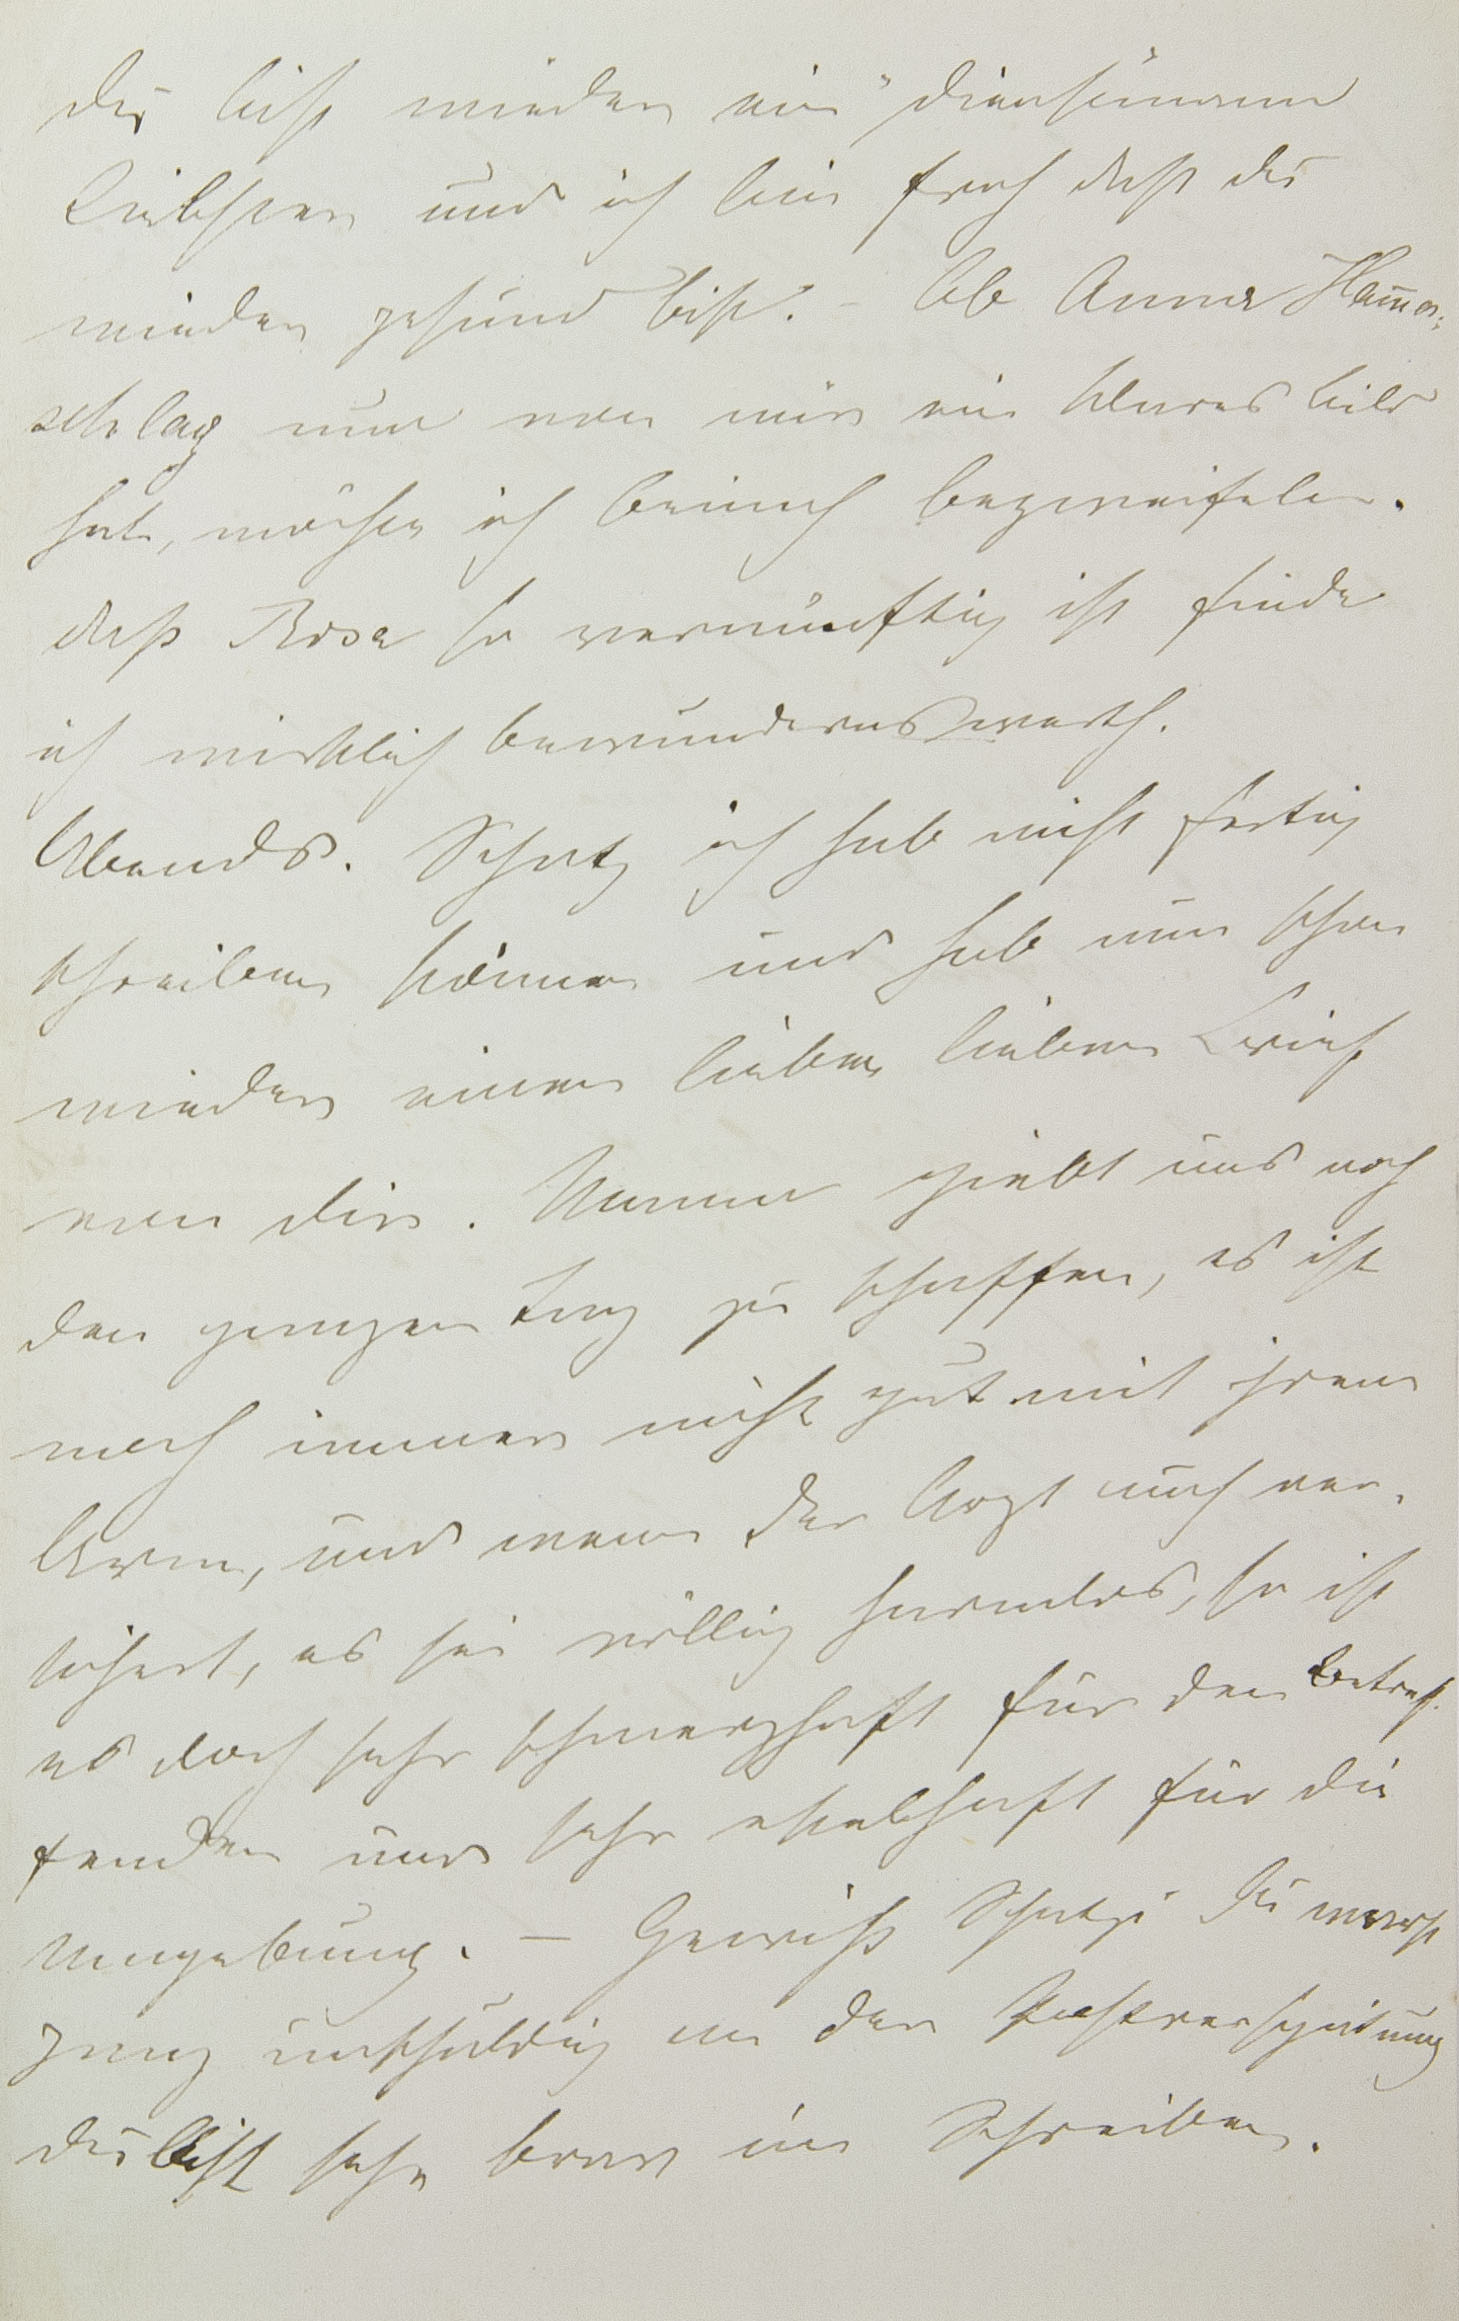 Du bist wieder ein Dienstmann
Liebster und ich bin froh daß du
wieder gesund bist. – Ob Anna Ham̅er-
schlag nun von mir ein klares Bild
hat, möchte ich beinah bezweifeln.
daß Rosa so vernünftig ist finde
ich wirklich bewundernswerth.
Abends. Schatz ich hab nicht fertig
schreiben können und hab nun schon
wieder einen lieben lieben Brief
von dir. Mama giebt uns noch
den ganzen Tag zu schaffen, es ist
noch immer nicht gut mit ihrem
Arm, und wenn der Arzt auch ver-
sichert, es sei völlig harmlos, so ist
es doch sehr schmerzhaft für den Betref-
fenden und sehr ekelhaft für die
Umgebung. – Gewiß Schatzi Du warst
ganz unschuldig an der Postverspätung
du bist sehr brav im Schreiben.